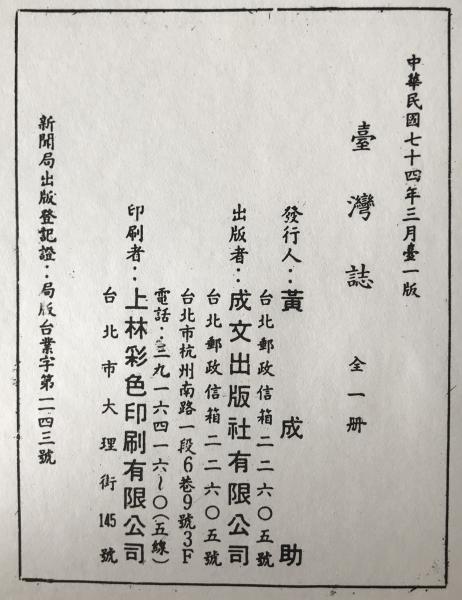 中華民國七十四年三月臺一版
臺灣誌 全一册
發行人：黃成助
台北郵政信箱二二六〇五號
出版者：成文出版社有限公司
台北郵政信箱二二六〇五號
台北市杭州南路一段6巷9號3F
電話：三九一六四一六～〇（五線）
印刷者：上林彩色印刷有限公司
台北市大理街145號
新聞局出版登記證：局版台業字第一一四三號